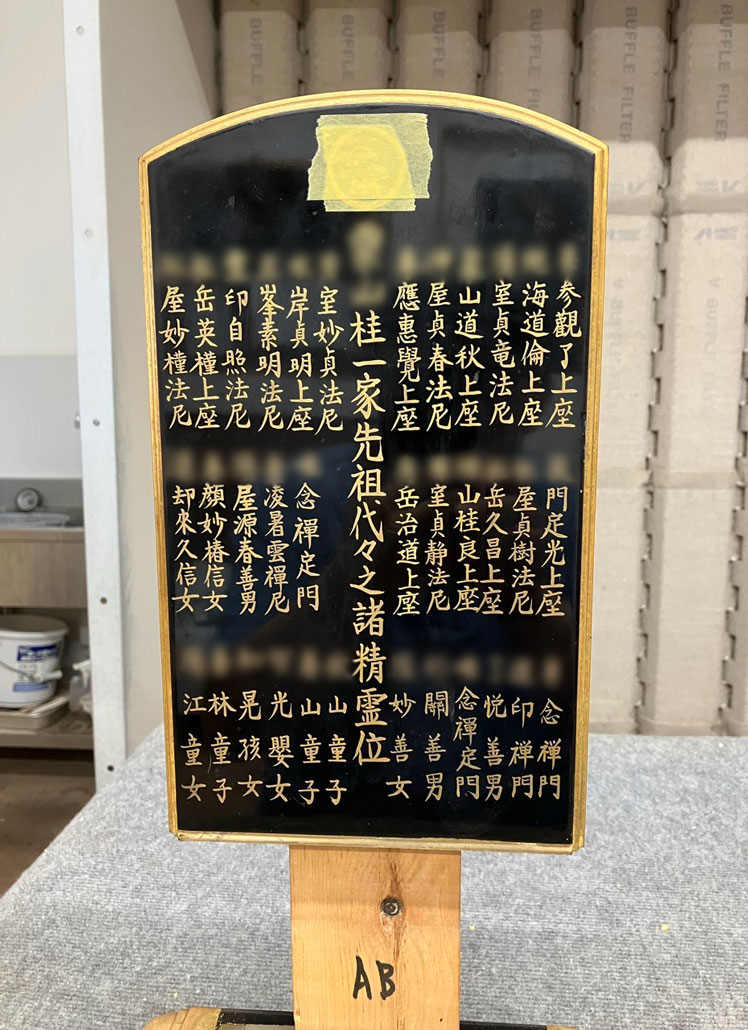 参觀了上座
海道倫上座
室貞竜法尼
山道秋上座
屋貞春法尼
應惠覺上座
門定光上座
屋貞樹法尼
岳久昌上座
山桂良上座
室貞静法尼
岳治道上座
念禅門
印禅門
悦善男
念禅定門
關善男
妙善女
桂一家先祖代々之諸精霊位
室妙貞法尼
岸貞明上座
峯素明法尼
印自照法尼
岳英橦上座
屋妙橦法尼
念禪定門
凌暑雲禪尼
屋源春善男
顔妙椿信女
却來久信女
山童子
山童子
光嬰女
晃孩女
林童子
江童女
AB
BUFFLE FILTER
BUFFLE FILTER
BUFFLE FILTER
BUFFLE FILTER
BUFFLE FILTER
BUFFLE FILTER